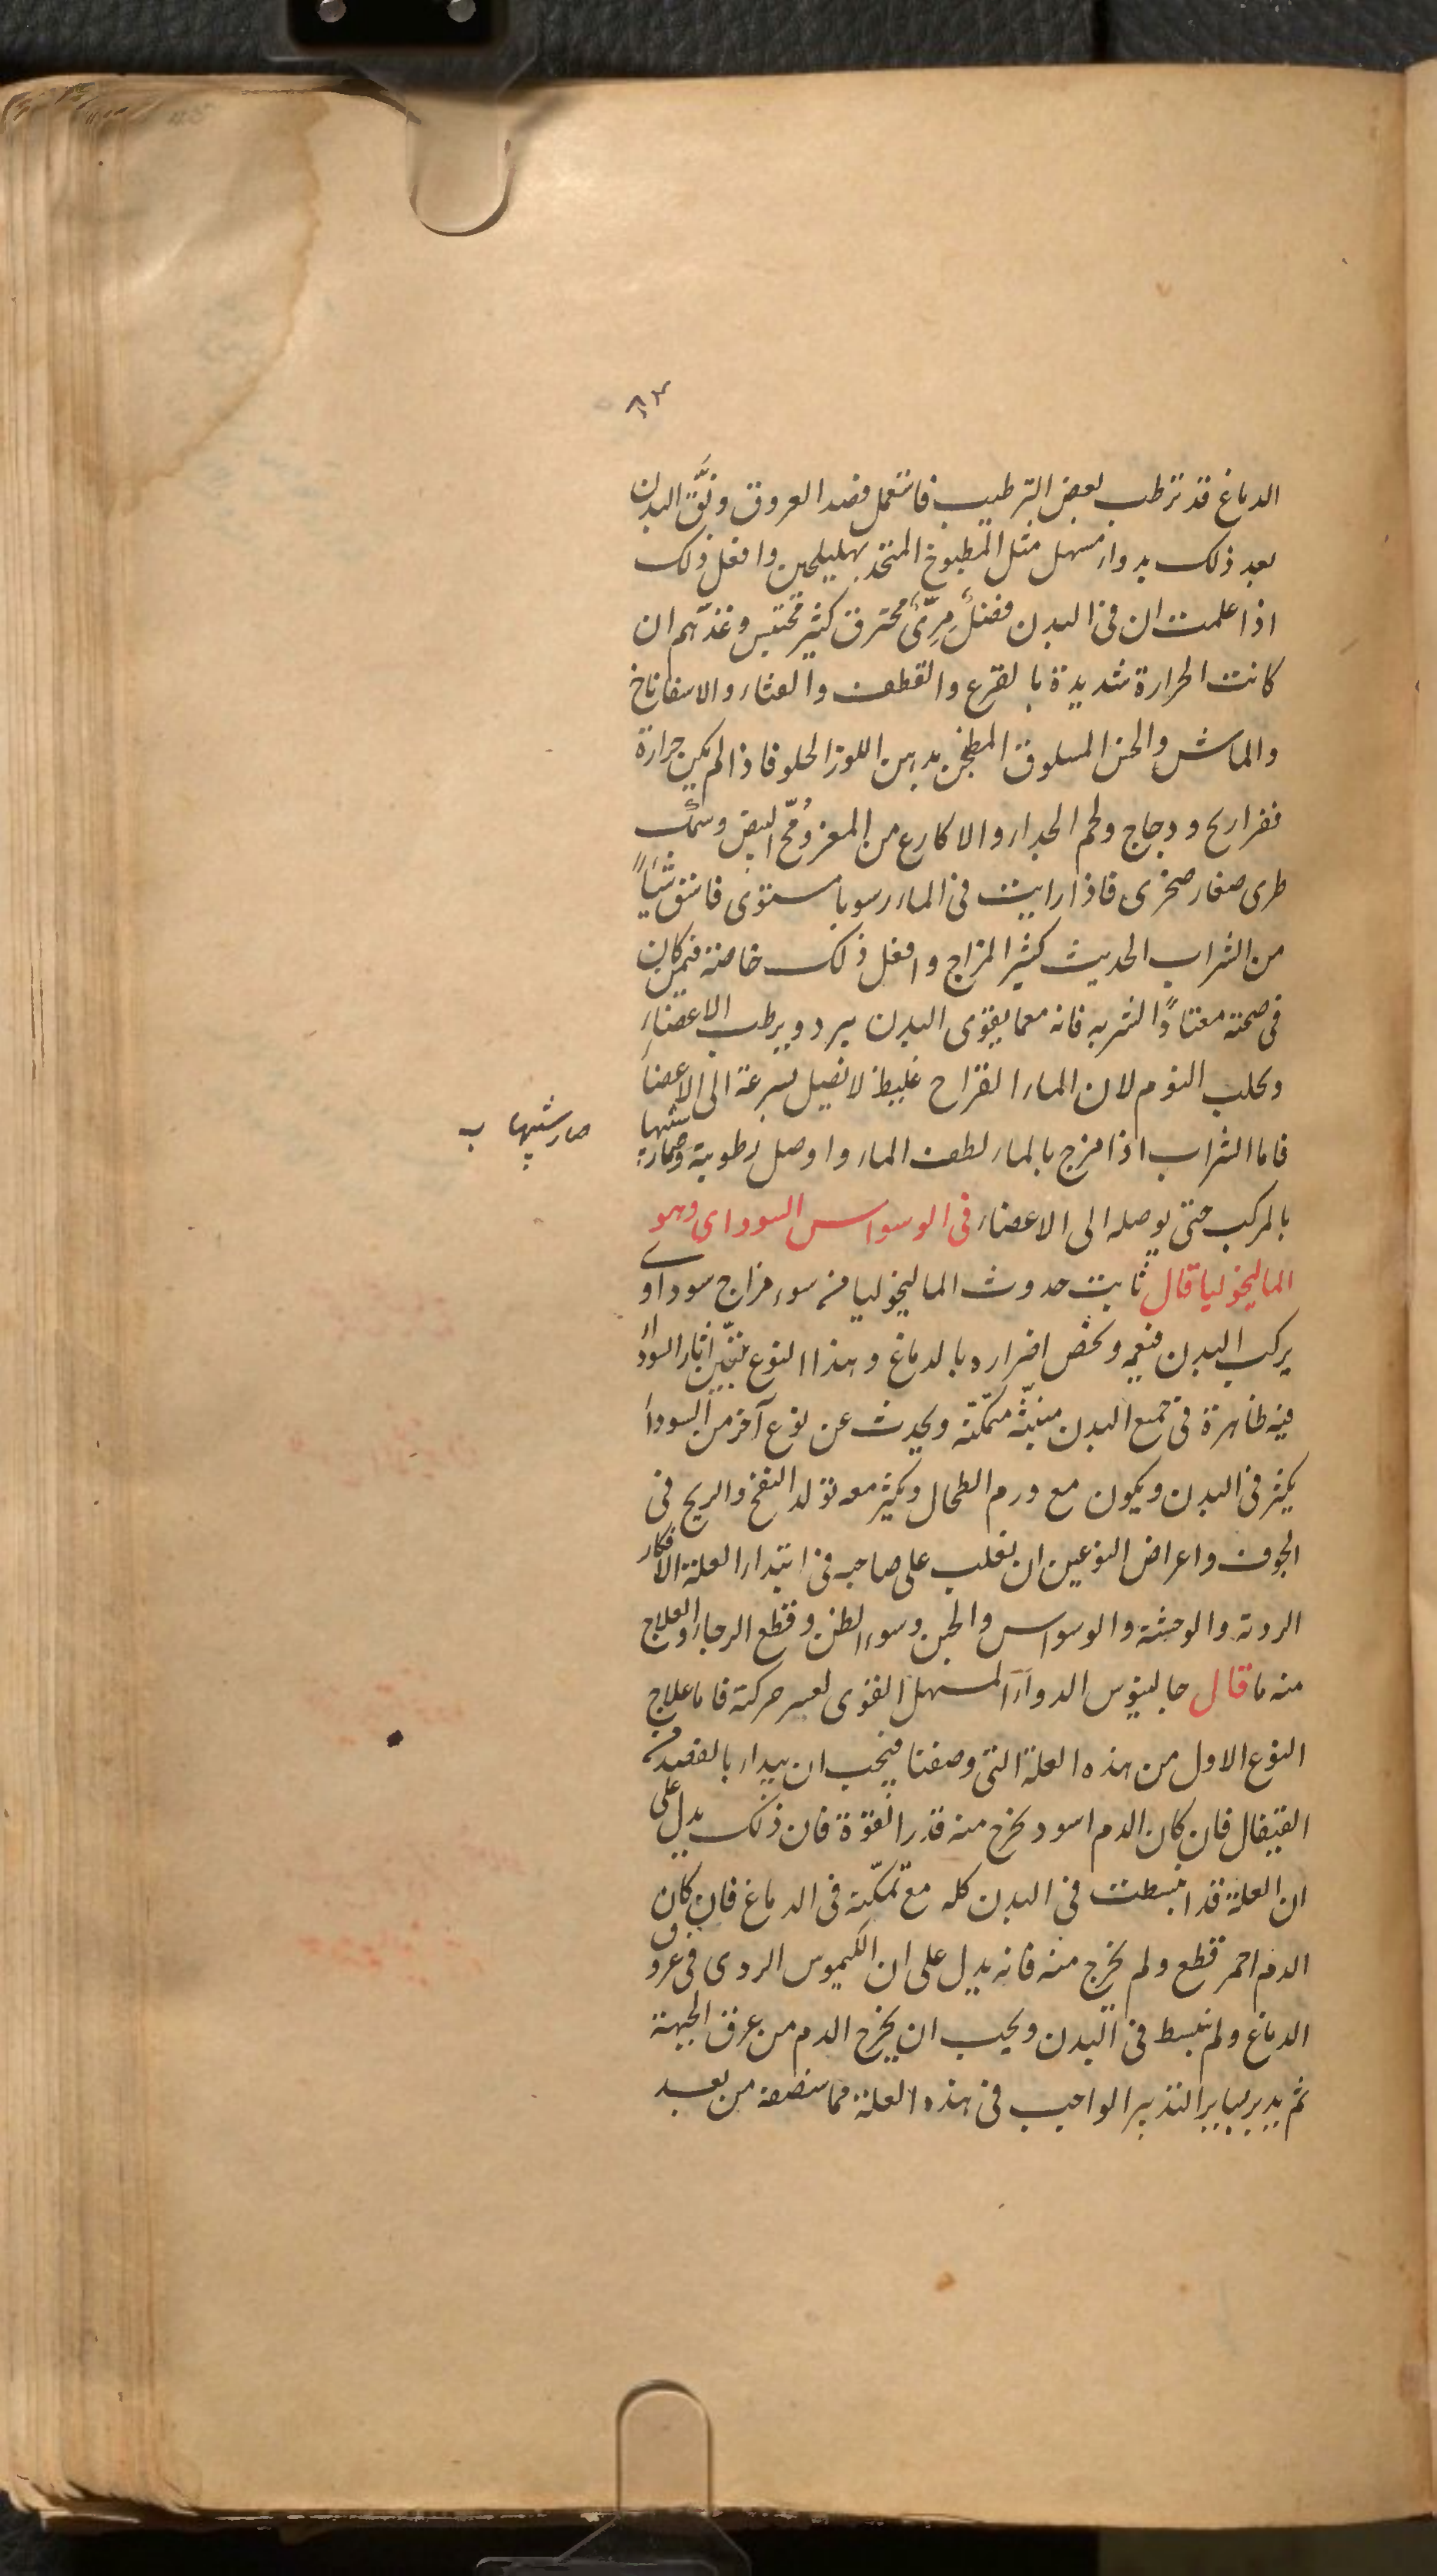 ٨٣
الدماغ قد ترطب بعض الترطيب فاستعمل فصد العروق ونَقّ البدن
بعد ذلك بدواء مسهل مثل المطبوخ المتخذ بهليلجين وافعل ذلك
اذا علمت ان فى البدن فضلٌ مِرّىٌ محترق كثير محتبس وغذّهم ان
كانت الحرارة شديدة بالقرع والقطف والقثاء والاسفاناخ
والماش والخس المسلوق المطجن بدهن اللوز الحلو فاذا لم يكن حرارة
ففراريج ودجاج ولحم الجداء والاكارع من المعز ومُحّ البيض وسمك
طرى صغار صخرى فاذا رايت فى الماء رسوبا مستوى فاسق شيًا
من الشراب الحديث كثير المزاج وافعل ذلك خاصة فيمن كان
فى صحته معتادًا لشربه فانه معما يقوى البدن يبرد ويرطب الاعضاء
ويجلب النوم لان الماء القراح غليظ لا يصل بسرعة الى الاعضاء
فاما الشراب اذا مزج بالماء لطف الماء واوصل رطوبة وصار شبها
صار شبيها ب
بالمركب حتى يوصله الى الاعضاء فى الوسواس السوداى وهو
الماليخوليا قال ثابت حدوث الماليخوليا من سوء مزاج سوداوى
يركب البدن فيعمه ويخص اضراره بالدماغ وهذا النوع تتبيّن اثار السوداء
فيه ظاهرة فى جميع البدن منبثّة متمكّنة ويحدث عن نوع آخر من السوداء
يكثر فى البدن ويكون مع ورم الطحال ويكثر معه تولد النفخ والريح فى
الجوف واعراض النوعين ان تغلب على صاحبه فى ابتداء العلة الافكار
الردية والوحشة والوسواس والجبن وسوء الظن وقطع الرجاء والعلاج
منه ما قال جالينوس الدواء المسهل القوى لعسر حركته فاما علاج
النوع الاول من هذه العلة التى وصفنا فيجب ان يبداء بالفصد من
القيفال فان كان الدم اسود يخرج منه قدر القوة فان ذلك يدل على
ان العلة قد انبسطت فى البدن كله مع تمكّنه فى الدماغ فان كان
الدم احمر قطع ولم يخرج منه فانه يدل على ان الكيموس الردى فى عروق
الدماغ ولم ينبسط فى البدن ويجب ان يخرج الدم من عرق الجبهة
ثم يدبر بساير التدبير الواجب فى هذه العلة مما سنصفه من بعد